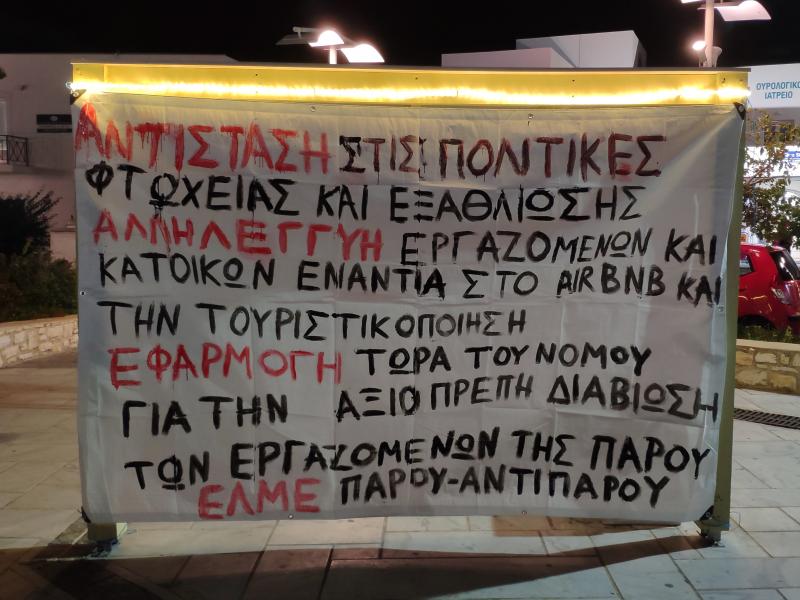 ΑΝΤΙΣΤΑΣΗ ΣΤΙΣ ΠΟΛΤΙΚΕΣ
ΦΤΩΧΕΙΑΣ ΚΑΙ ΕΞΑΘΛΙΩΣΗΣ
ΑΛΛΗΛΕΓΓΥΗ ΕΡΓΑΖΟΜΕΝΩΝ ΚΑΙ
ΚΑΤΟΙΚΩΝ ΕΝΑΝΤΙΑ ΣΤΟ AIRBNB ΚΑΙ
ΤΗΝ ΤΟΥΡΙΣΤΙΚΟΠΟΙΗΣΗ
ΕΦΑΡΜΟΓΗ ΤΩΡΑ ΤΟΥ ΝΟΜΟΥ
ΓΙΑ ΤΗΝ ΑΞΙΟΠΡΕΠΗ ΔΙΑΒΙΩΣΗ
ΤΩΝ ΕΡΓΑΖΟΜΕΝΩΝ ΤΗΣ ΠΑΡΟΥ
ΕΛΜΕ ΠΑΡΟΥ-ΑΝΤΙΠΑΡΟΥ
ΟΥΡΟΛΟΓΙΚΟ
ΙΑΤΡΕΙΟ